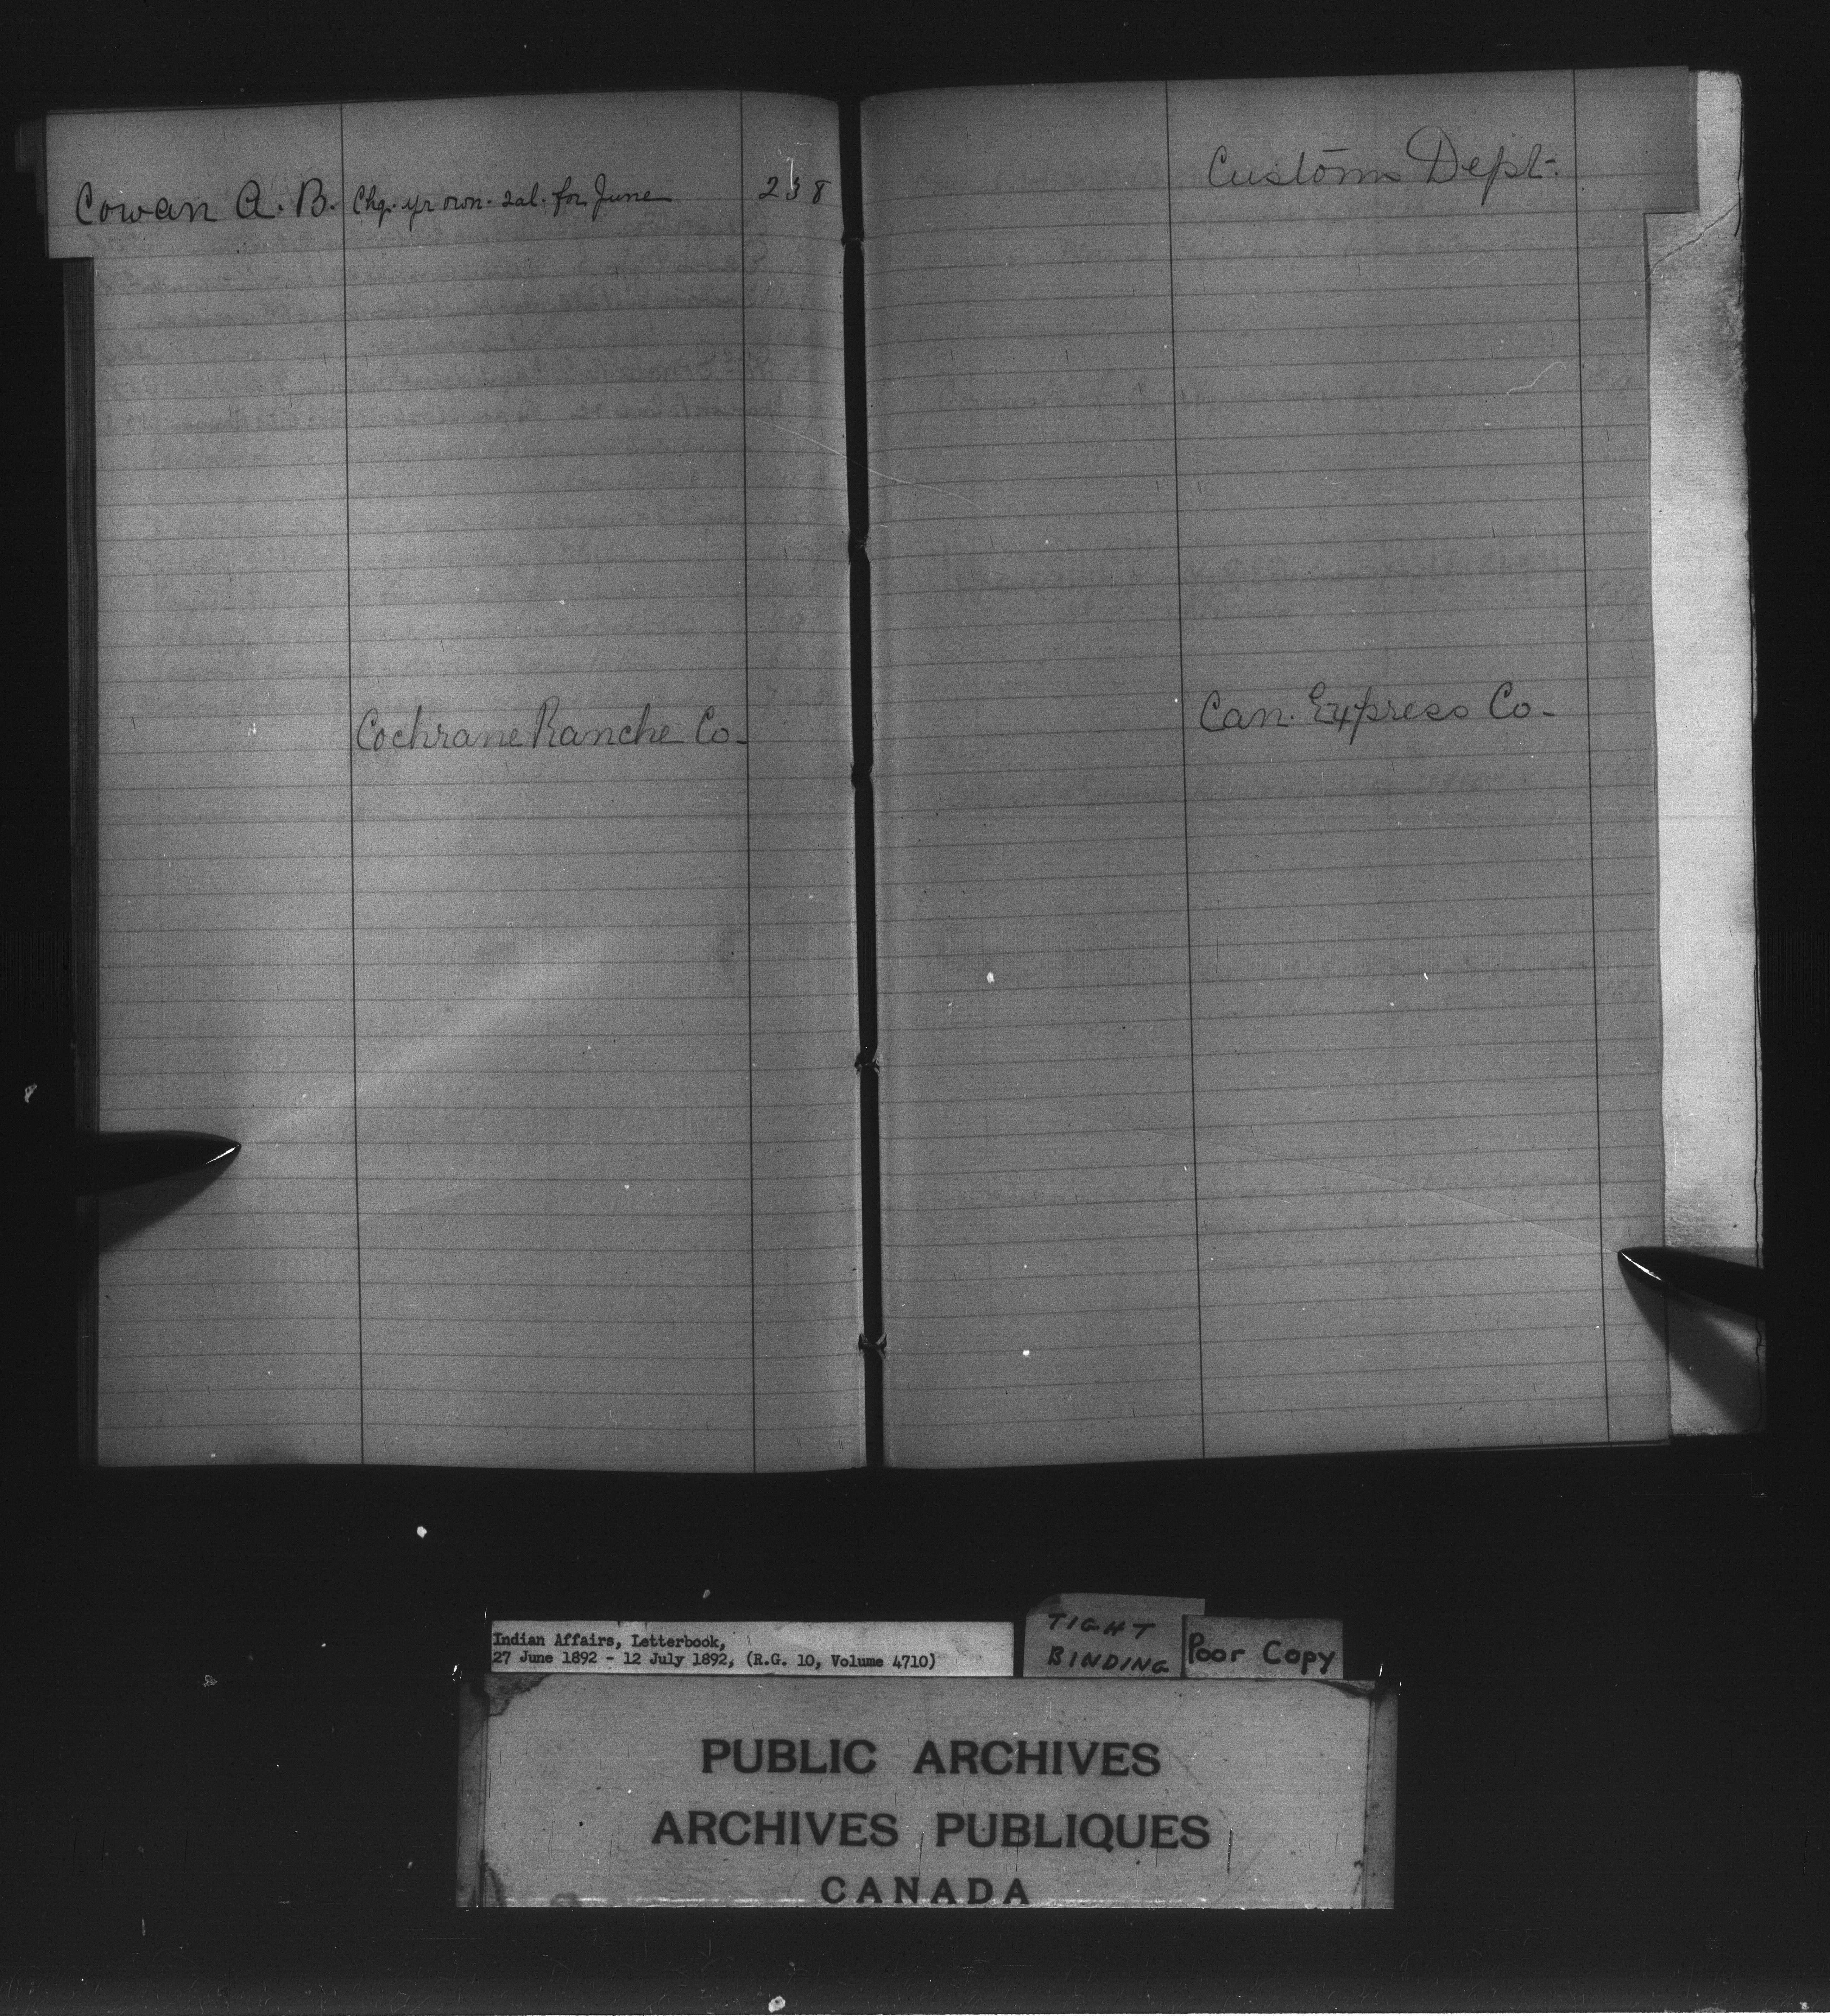 Cowan A. B. Chq. yr own. sal. for June 238
Cochrane Ranche Co.
Customs Dept.
Can. Express Co.
Indian Affairs, Letterbook,
27 June 1892 - 12 July 1892, (R.G. 10, Volume 4710)
TIGHT
BINDING
Poor Copy
PUBLIC ARCHIVES
ARCHIVES PUBLIQUES
CANADA